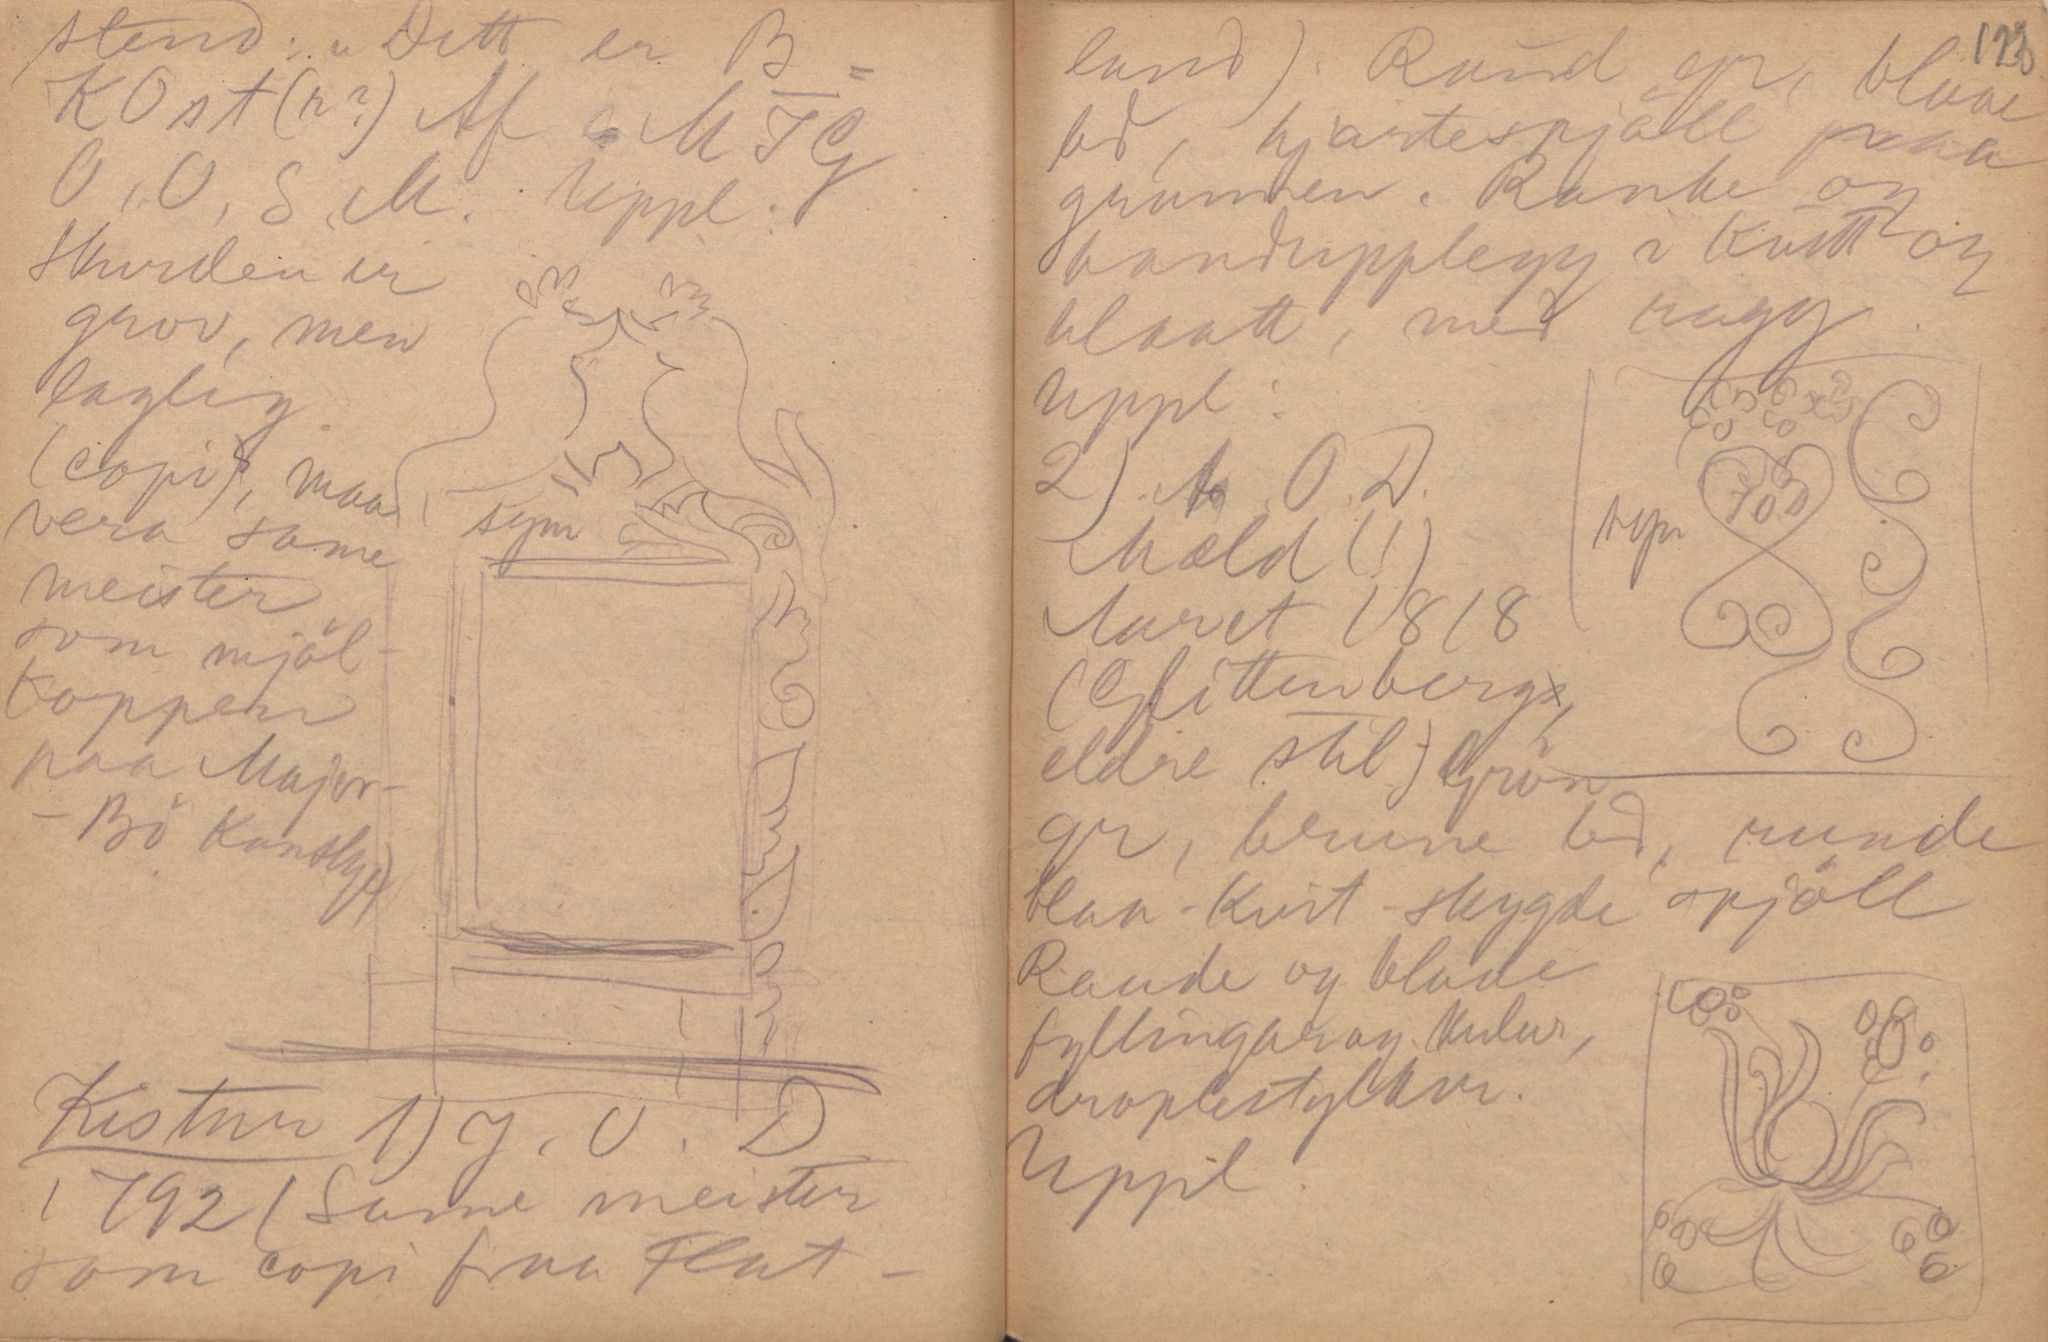 stend: „Dett er B=
KOst(r?) Af M T G
O, O, S, M. Uppl:
Skurden er
grov, men
laglig
(copi), maa
vera same
meister
som mjöl-
koppen
paa Major-
-Bö Kunstyp)
sym
Kistur 1) J. O. D
1792 (Same meister
som copi fraa Flat-
123
land). Raud gr, blaae
bd, hjartespjäll paa
grunnen. Ranke og
bandupplegg i kvitt og
blaatt, med rugg.
Uppl:
sym
2) A O. D.
Mæld (!)
Aaret 1818
(Glittenberg,
eldre stil) Grön
gr, brune bd, runde
blaa-kvit-skygde spjäll
Raude og blaae
fyllingar og kulur,
droplestylkur.
Uppl.